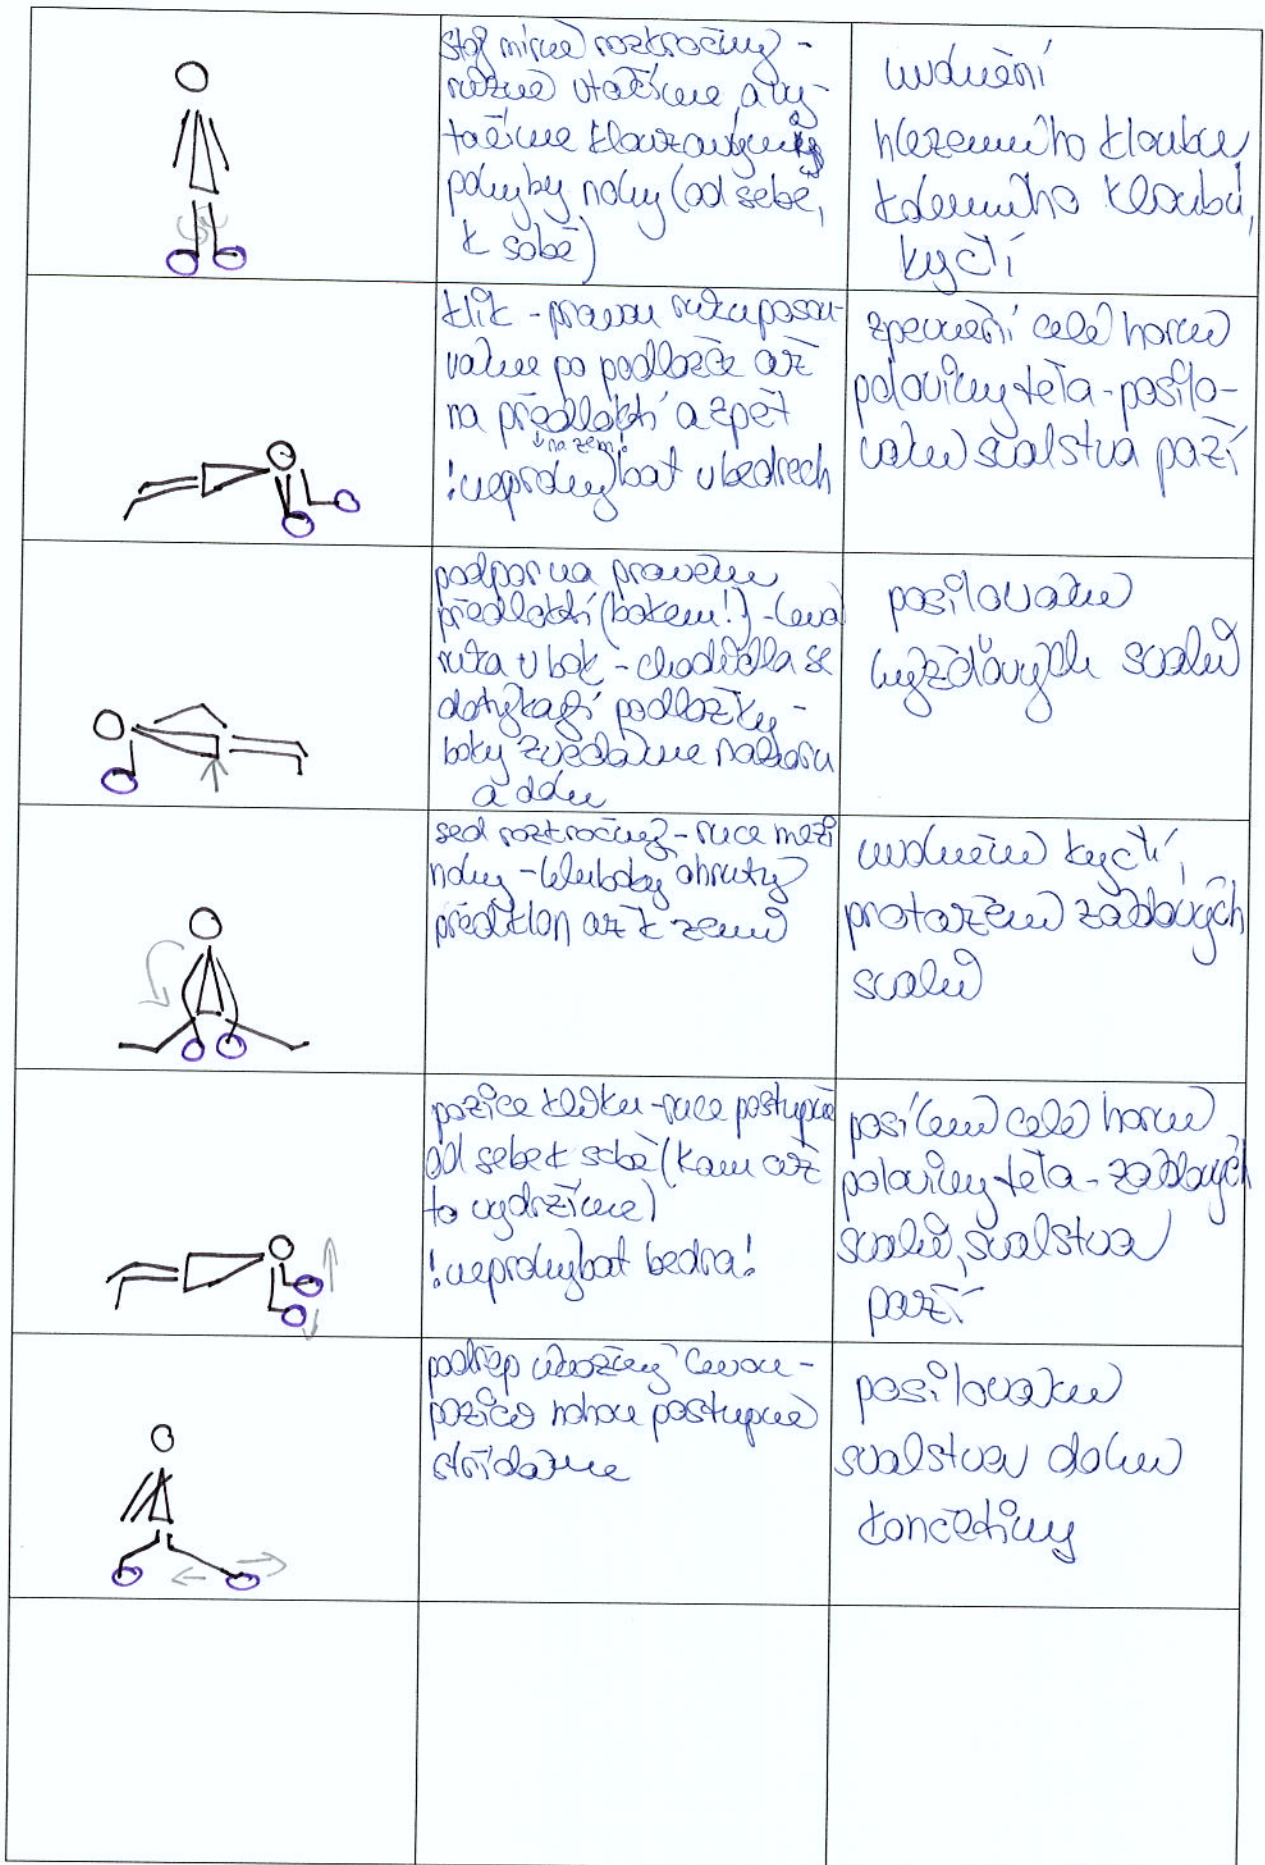 stoj mírně rozkročný -
různě vtáčíme a vy-
táčíme klouzavými
pohyby nohy (od sebe,
k sobě)
uvolnění
hlezenního kloubu,
kolenního kloubu,
kyčlí
klik - pravou ruku posou-
váme po podložce až
na předloktí a zpět
↓ na zem!
!neprohýbat v bedrech
zpevnění celé horní
poloviny těla - posilo-
vání svalstva paží
podpor na pravém
předloktí (bokem!) - levá
ruka v bok - chodidla se
dotýkají podložky -
boky zvedáme nahoru
a dolu
posilování
hýžďových svalů
sed roznožný - ruce mezi
nohy - hluboký ohnutý
předklon až k zemi
uvolnění kyčlí,
protažení zádových
svalů
pozice kliku - ruce postupně
od sebe k sobě (kam až
to vydržíme)
!neprohýbat bedra!
posílení celé horní
poloviny těla - zádových
svalů, svalstva
paží
podřep únožný levou -
pozice nohou postupně
střídáme
posilování
svalstva dolní
končetiny